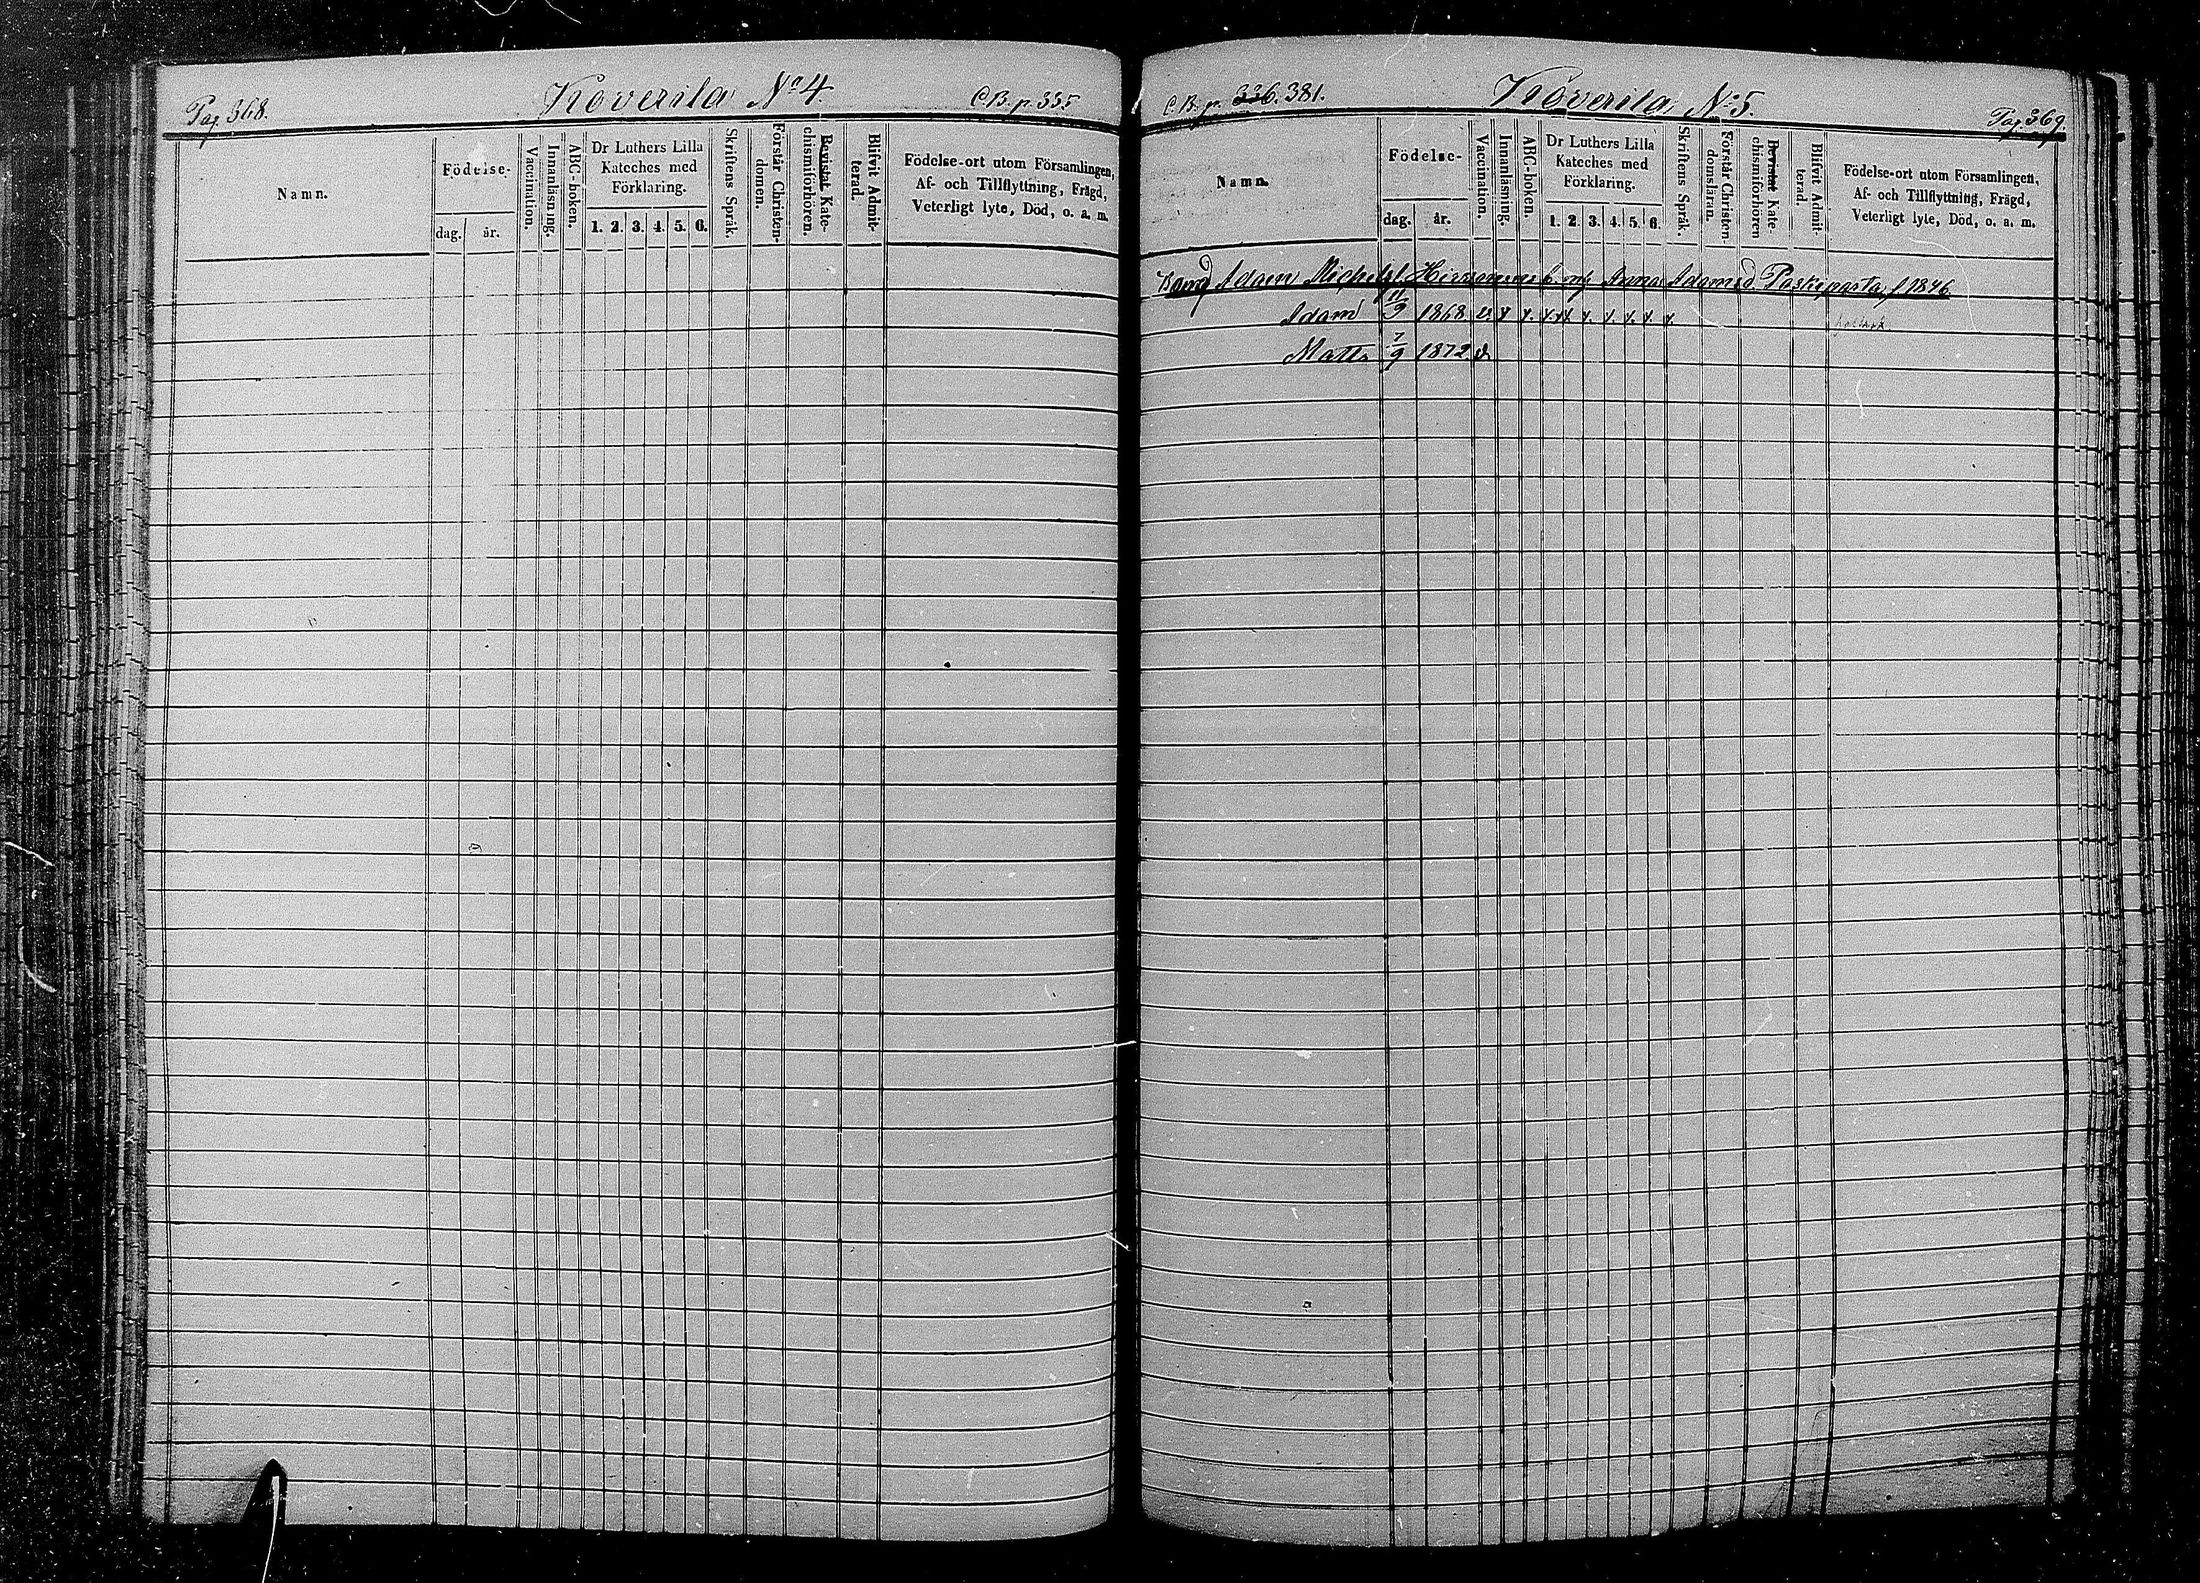 Pag. 368. Koverila No 4. C.B. p. 335
Namn. Födelse- dag. år. Vaccination. Innanläsning. ABC-boken. Dr Luthers Lilla Kateches med Förklaring. 1. 2. 3. 4. 5. 6. Skriftens Språk. Förstår Christendomen. Bevistat Katechismiförhören. Blifvit Admitterad. Födelse-ort utom Församlingen, Af- och Tillflyttning, Frägd, Veterligt lyte, Död, o. a. m.
C.B. p. 336. 381. Koverila No 5. Pag. 369.
Namn. Födelse- dag. år. Vaccination. Innanläsning. ABC-boken. Dr Luthers Lilla Kateches med Förklaring. 1. 2. 3. 4. 5. 6. Skriftens Språk. Förstår Christendomsläran. Bevistat Katechismiförhören Blifvit Admitterad. Födelse-ort utom Församlingen, Af- och Tillflyttning, Frägd, Veterligt lyte, Död, o. a. m.
Adam Michels. Anna Adamsd. f 1846
Adam 11/9 1868
Matts 7/9 1872 v.